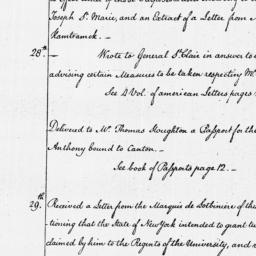 Joseph St. Marie, and an Extract of a Letter from
Hamtramck. —
28th — Wrote to General St. Clair in answer to
advising certain Measures to be taken respecting Mr.
See 4 Vol. of american Letters pages
Delivered to Mr. Thomas Houghton a Passport for the
Anthony bound to Canton. —
See book of Passports page 12. —
29th Received a Letter from the Marquis de Lotbiniere of the
tioning that the State of New York intended to grant
claimed by him to the Regents of the University, and